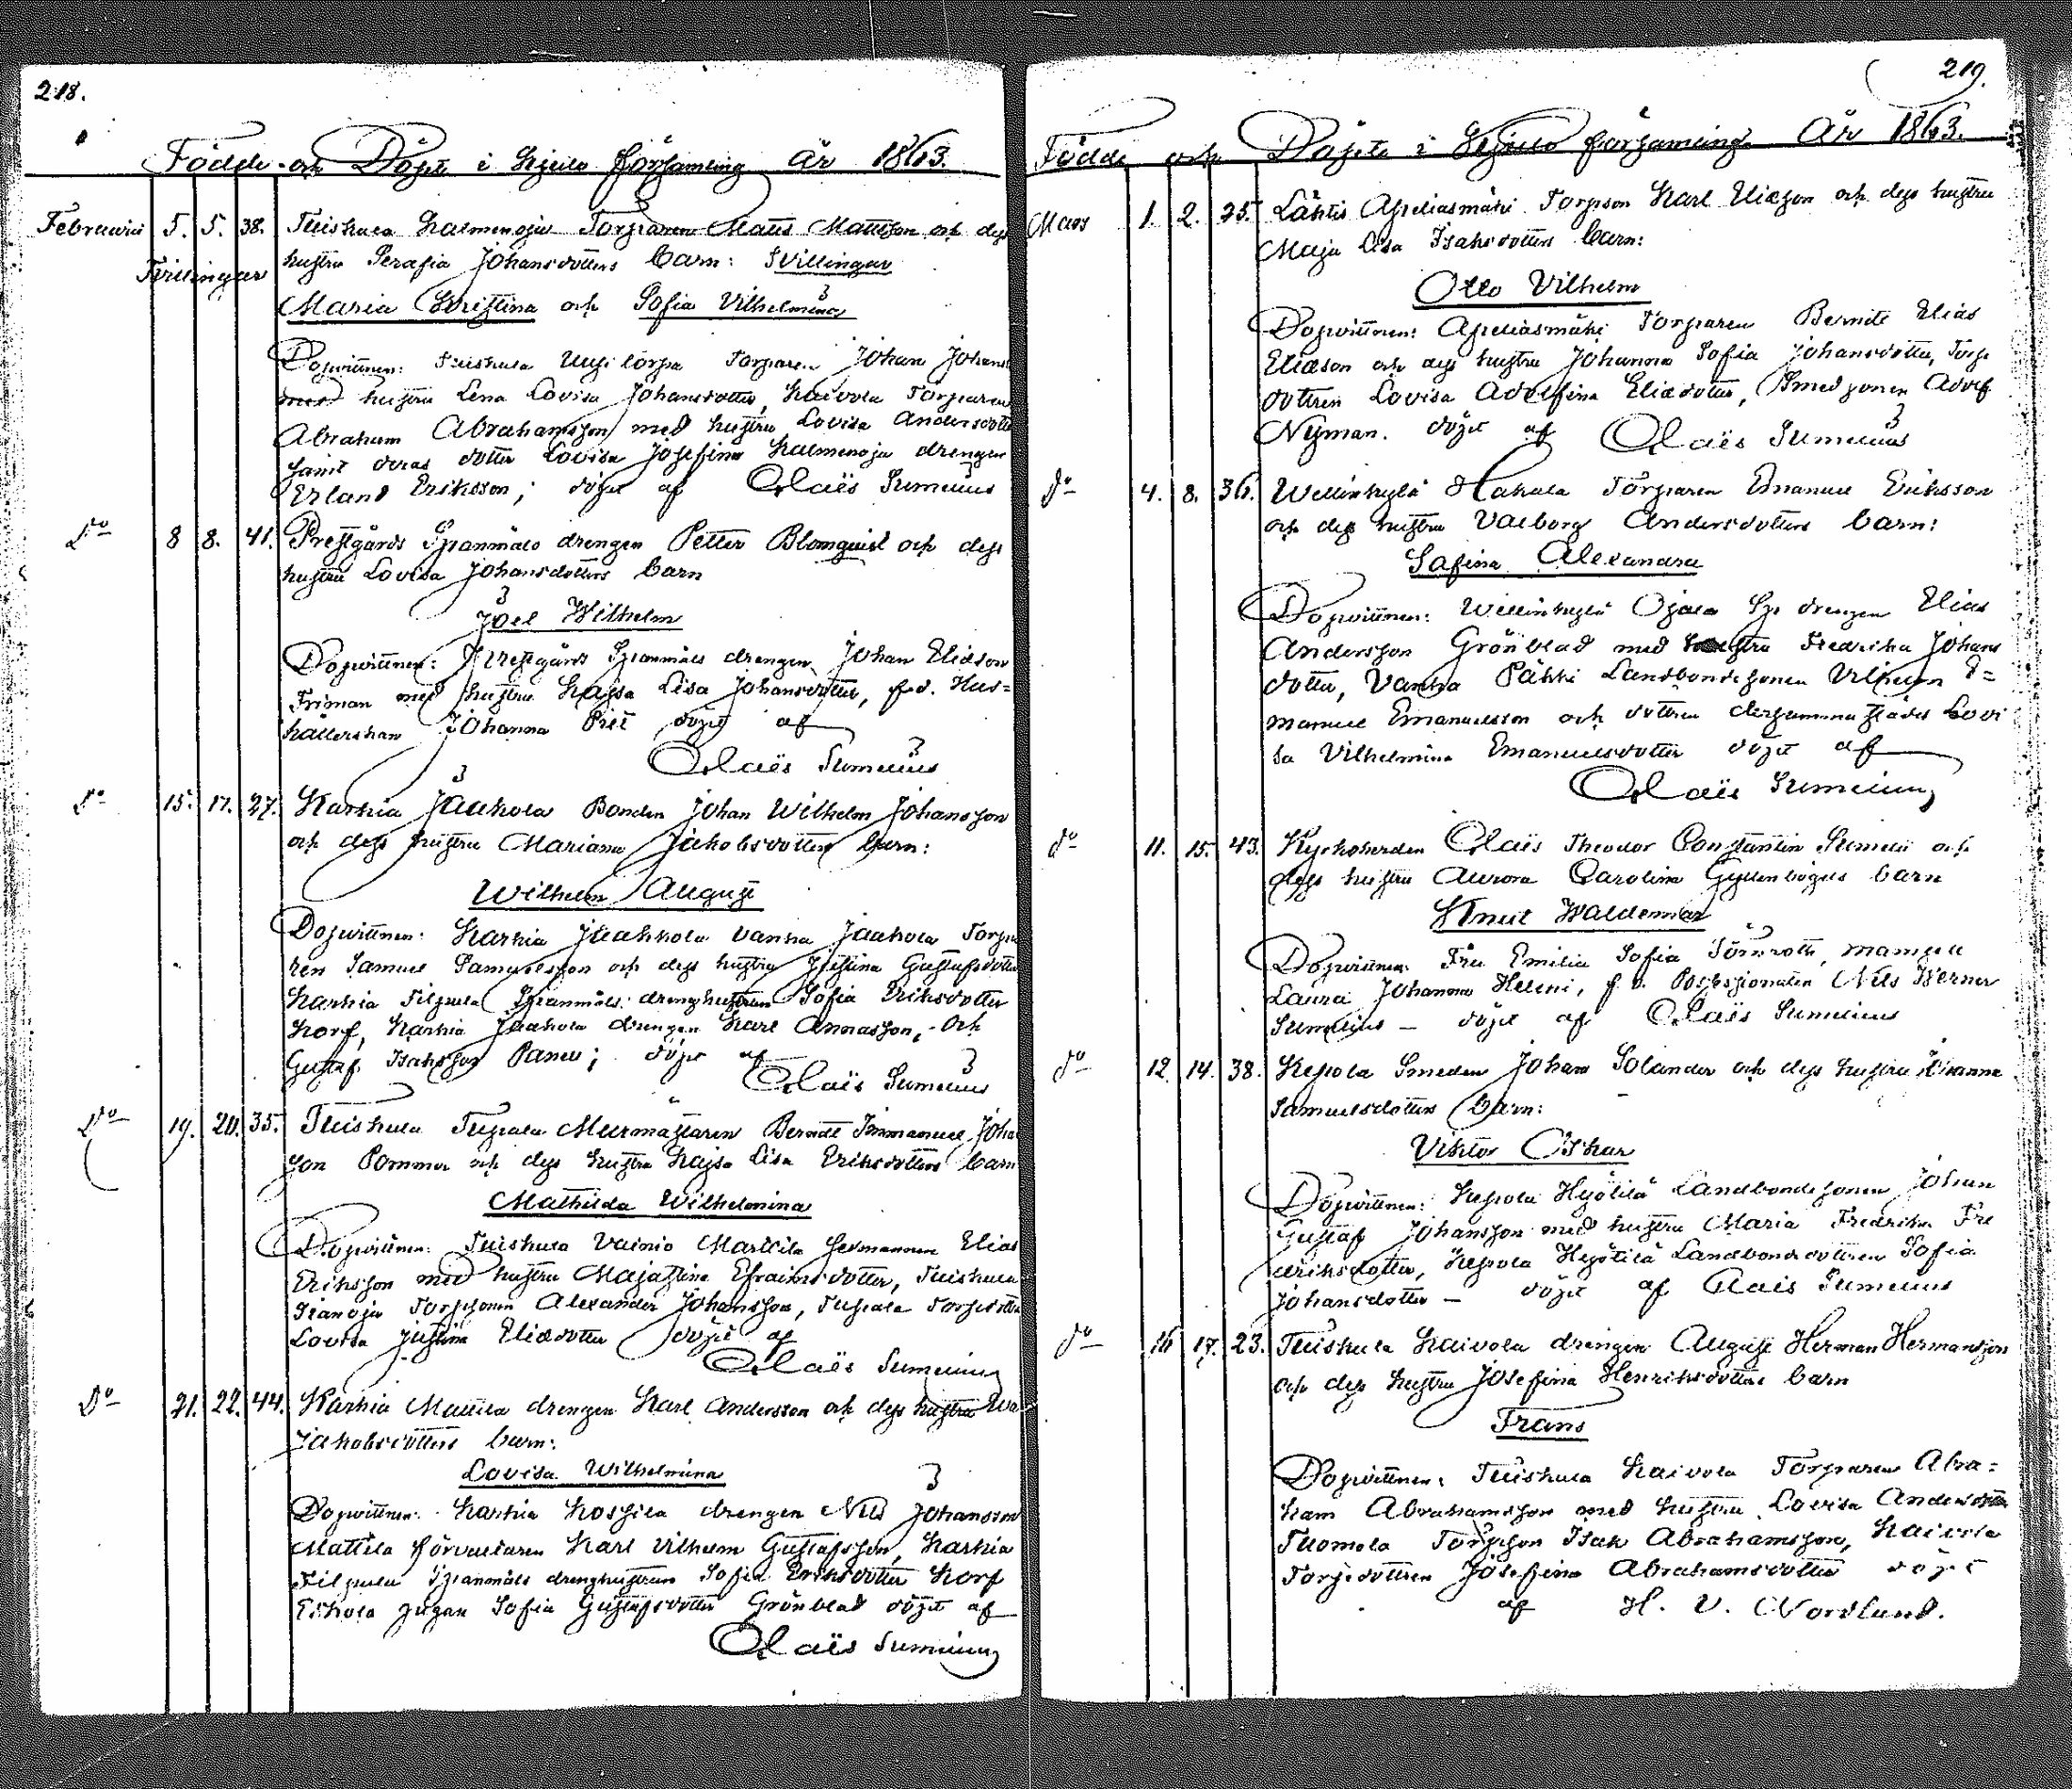 218.
Födde och Döpte i Kjulo församling År 1863.
Februarii 5. 5. 38. Tuiskula Kalmenoja Torparen Matts Mattsson och dess
Tvillingar
hustru Serafia Johansdotters barn: Tvillingar
Maria Kristina och Sofia Vilhelmina
Dopvittnen: Tuiskula Uusi torpa Torparen Johan Johans
med hustru Lena Lovisa Johansdotter, Kaivola Torparen
Abraham Abrahamsson med hustru Lovisa Andersdotter
samt deras dotter Lovisa Josefina Kalmenoja drengen
Erland Eriksson; döpt af Claës Sumelius
Do 8 8. 41. Prestgårds Spanmåls drengen Petter Blomquist och dess
hustru Lovisa Johansdotters barn
Joel Wilhelm
Dopvittnen: Prestgårds Spanmåls drengen Johan Eliasson
Friman med hustru Kajsa Lisa Johansdotter, f.d. Hus=
hållerskan Johanna döpt af
Claës Sumelius
Do 15. 17. 27. Karhia Jaakola Bonden Johan Wilhelm Johansson
och dess hustru Mariana Jakobsdotters barn:
Wilhelm August
Dopvittnen: Karhia Jaakkola Vanha Jaakola Torpa
ren Samuel Samuelsson och dess hustru Justina Gustafsdotter
Karhia Filppula Spanmåls drenghustrun Sofia Eriksdotter
Korf, Karhia Jaakola drengen Karl Annasson, och
Gustaf Isaksson Paneli; döpt af
Claës Sumelius
Do 19. 20. 35. Tuiskula Tupala Murmästaren Berndt Immanuel Johans
son Pommer och dess hustru Kajsa Lisa Eriksdotters barn
Mathilda Wilhelmina
Dopvittnen: Tuiskula Vainio Marttila Hemmannen Elias
Eriksson med hustru Maja Stina Efraimsdotter, Tuiskula
Torpsonen Alexander Johansson, Tupala Torpdotter
Lovisa Justina Eliedotter döpt af
Claës Sumelius
Do 21. 22. 44. Karhia Mattila drengen Karl Andersson och dess hustru
Jakobsdotters barn:
Lovisa Wilhelmina
Dopvittnen: Karhia Kossila drengen Nils Johansson
Mattila förvaltaren Karl Vilhelm Gustafsson, Karhia
Filppula Spanmåls drenghustrun Sofia Eriksdotter Korf
Eskola pigan Sofia Gustafsdotter Grönblad döpt af
Claës Sumelius
219.
Födde och Döpte i Kjulo församling År 1863.
Mars 1. 2. 25. Lähtis Aspeliasmäki Torpson Karl Eliasson och dess hustru
Maja Lisa Isaksdotters barn:
Otto Vilhelm
Dopvittnen: Aspeliasmäki Torparen Berndt Elias
Eliasson och dess hustru Johanna Sofia Johansdotter, Torp
dottren Lovisa Adolfina Eliedotter, Smedsonen Adolf
Nyman. döpt af Claës Sumelius
do 4. 8. 36. Wellinkylä Hakula Torparen Emanuel Eriksson
och dess hustru Valborg Andersdotters barn:
Safina Alexandra
Dopvittnen: Wellinkylä Ojala Sp. drengen Elias
Andersson Grönblad med hustru Fredrika Johans
dotter, Vanha Pähki Landbondesonen Vilhelm E=
manuel Emanuelsson och dottren dersammastädes Lovi
sa Vilhelmina Emanuelsdotter döpt af
Claës Sumelius
do 11. 15. 43. Kyrkoherden Claës Theodor Constantin Sumelii och
dess hustru Aurora Carolina Gyllenbögels barn
Knut Waldemar
Dopvittnen: Fru Emilia Sofia Törnroth, mamsell
Laura Johanna Heleni, f.d. Possessionaten Nils Werner
Sumelius – döpt af Claës Sumelius
do 12. 14. 38. Kepola Smeden Johan Solander och dess hustru
Samuelsdotters barn:
Viktor Oskar
Dopvittnen: Kepola Hyötilä Landbondesonen Johan
Gustaf Johansson med hustru Maria Fredrika Fre
driksdotter, Kepola Hyötilä Landbondedottren Sofia
Johansdotter – döpt af Claës Sumelius
do 16 17. 23. Tuiskula Kaivola drengen August Herman Hermansson
och dess hustru Josefina Henriksdotters barn
Frans
Dopvittnen: Tuiskula Kaivola Torparen Abra=
ham Abrahamsson med hustru Lovisa Andersdotter
Tuomola Torpson Isak Abrahamsson, Kaivola
Torpdottren Josefina Abrahamsdotter döpt
af H. V. Nordlund.